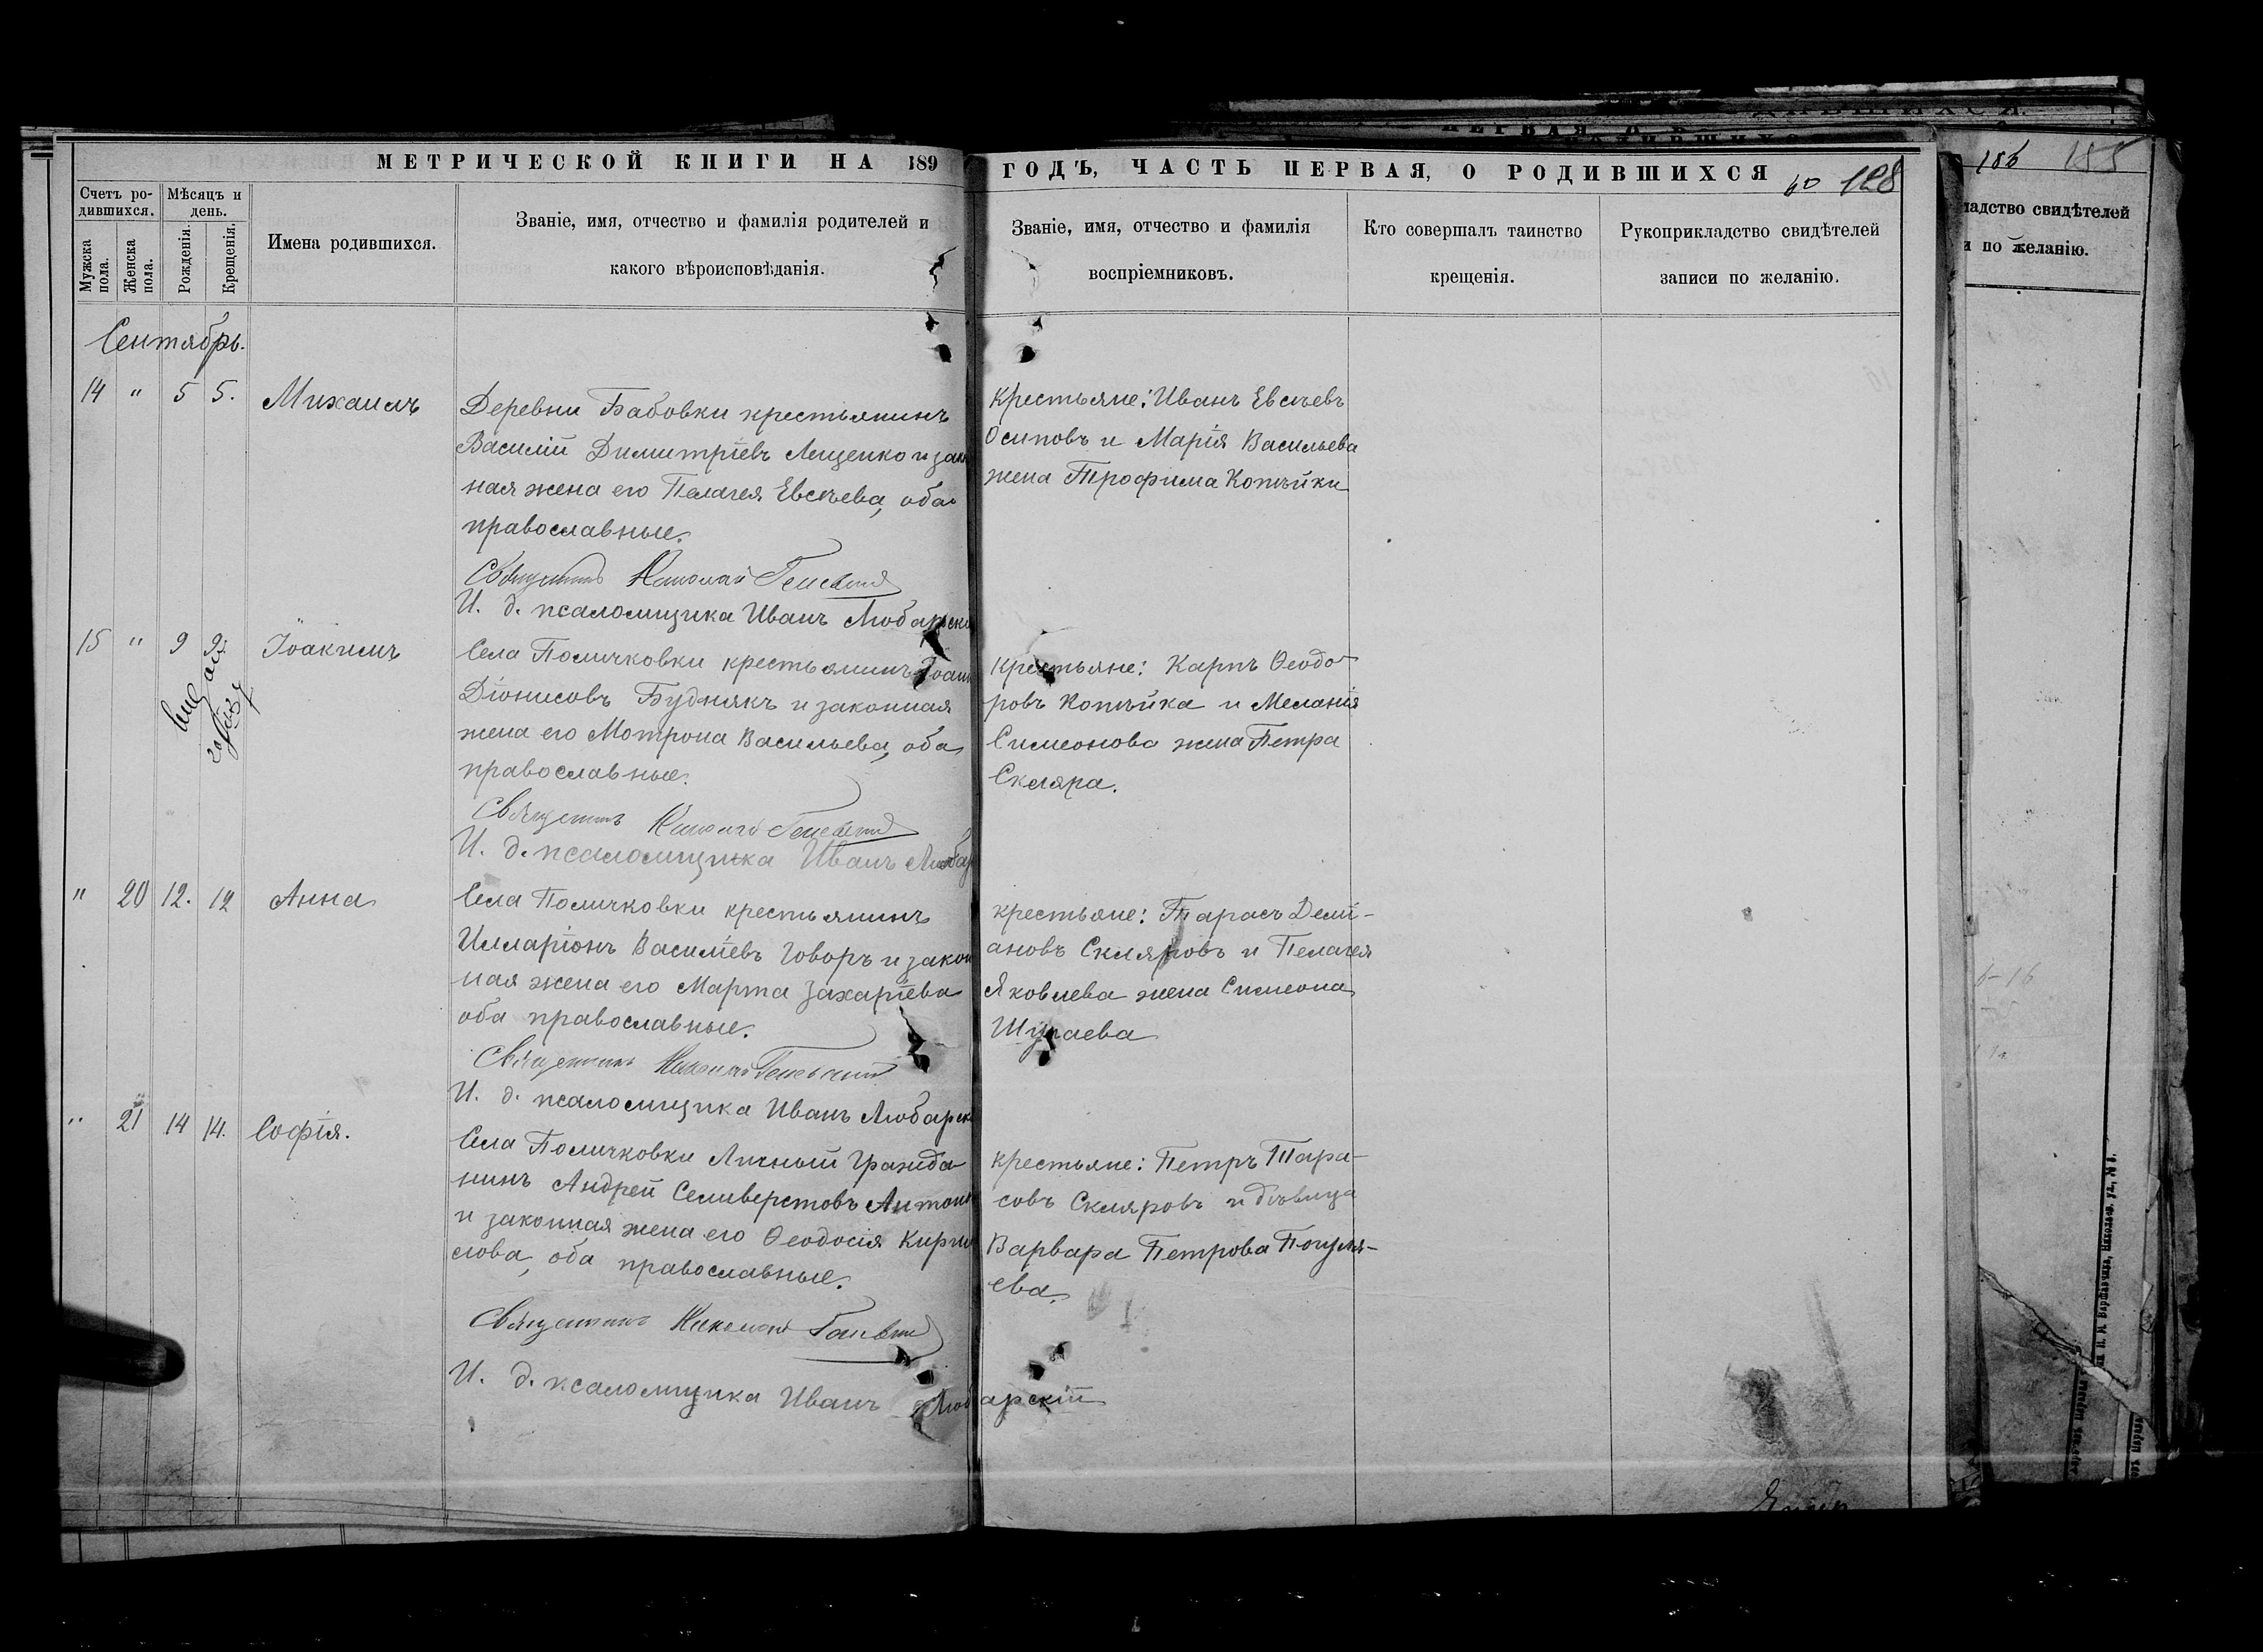 МЕТРИЧЕСКОЙ КНИГИ НА 189
ГОДЪ, ЧАСТЬ ПЕРВАЯ, О РОДИВШИХСЯ
128
186 185
Счетъ ро-
дившихся.
Мѣсяцъ и
день.
Мужска
пола.
Женска
пола.
Рожденія.
Крещенія.
Имена родившихся.
Званіе, имя, отчество и фамилія родителей и
какого вѣроисповѣданія.
Званіе, имя, отчество и фамилія
воспріемниковъ.
Кто совершалъ таинство
крещенія.
Рукоприкладство свидѣтелей
записи по желанію.
ладство свидѣтелей
и по желанію.
Сентябрь.
14 " 5 5. Михаилъ
Деревни Бабовки крестьянинъ
Василій Димитріевъ Лещенко и зако
ная жена его Пелагея Евсѣева, оба
православные.
Священникъ Николай
И. д. псаломщика Иванъ Любарскі
Крестьяне: Иванъ Евсѣевъ
Осиповъ и Марія Васильева
жена Трофима Копѣйки
15 " 9 9. Іоакимъ
Села Помичковки крестьянинъ Іоан
Діонисовъ Буднякъ и законная
жена его Мотрона Васильева, оба
православные.
Священникъ Николай
И. д. псаломщика Иванъ Любар
крестьяне: Карпъ Ѳеодо-
ровъ Копѣйка и Меланія
Симеонова жена Петра
Скляра.
" 20 12. 12 Анна
Села Помичковки крестьянинъ
Илларіонъ Василіевъ Говоръ и закон
ная жена его Марта Захаріева
оба православные.
Священникъ Николай
И. д. псаломщика Иванъ Любарск
крестьяне: Тарасъ Демі-
ановъ Скляровъ и Пелагея
Яковлева жена Симеона
" 21 14 14. Софія.
Села Помичковки Личный Гражда-
нинъ Андрей Селиверстовъ Антон
и законная жена его Ѳеодосія Кири
лова, оба православные.
Священникъ Николай
И. д. псаломщика Иванъ Любарскій
крестьяне: Петръ Тара-
совъ Скляровъ и дѣвица
Варвара Петрова
ева.